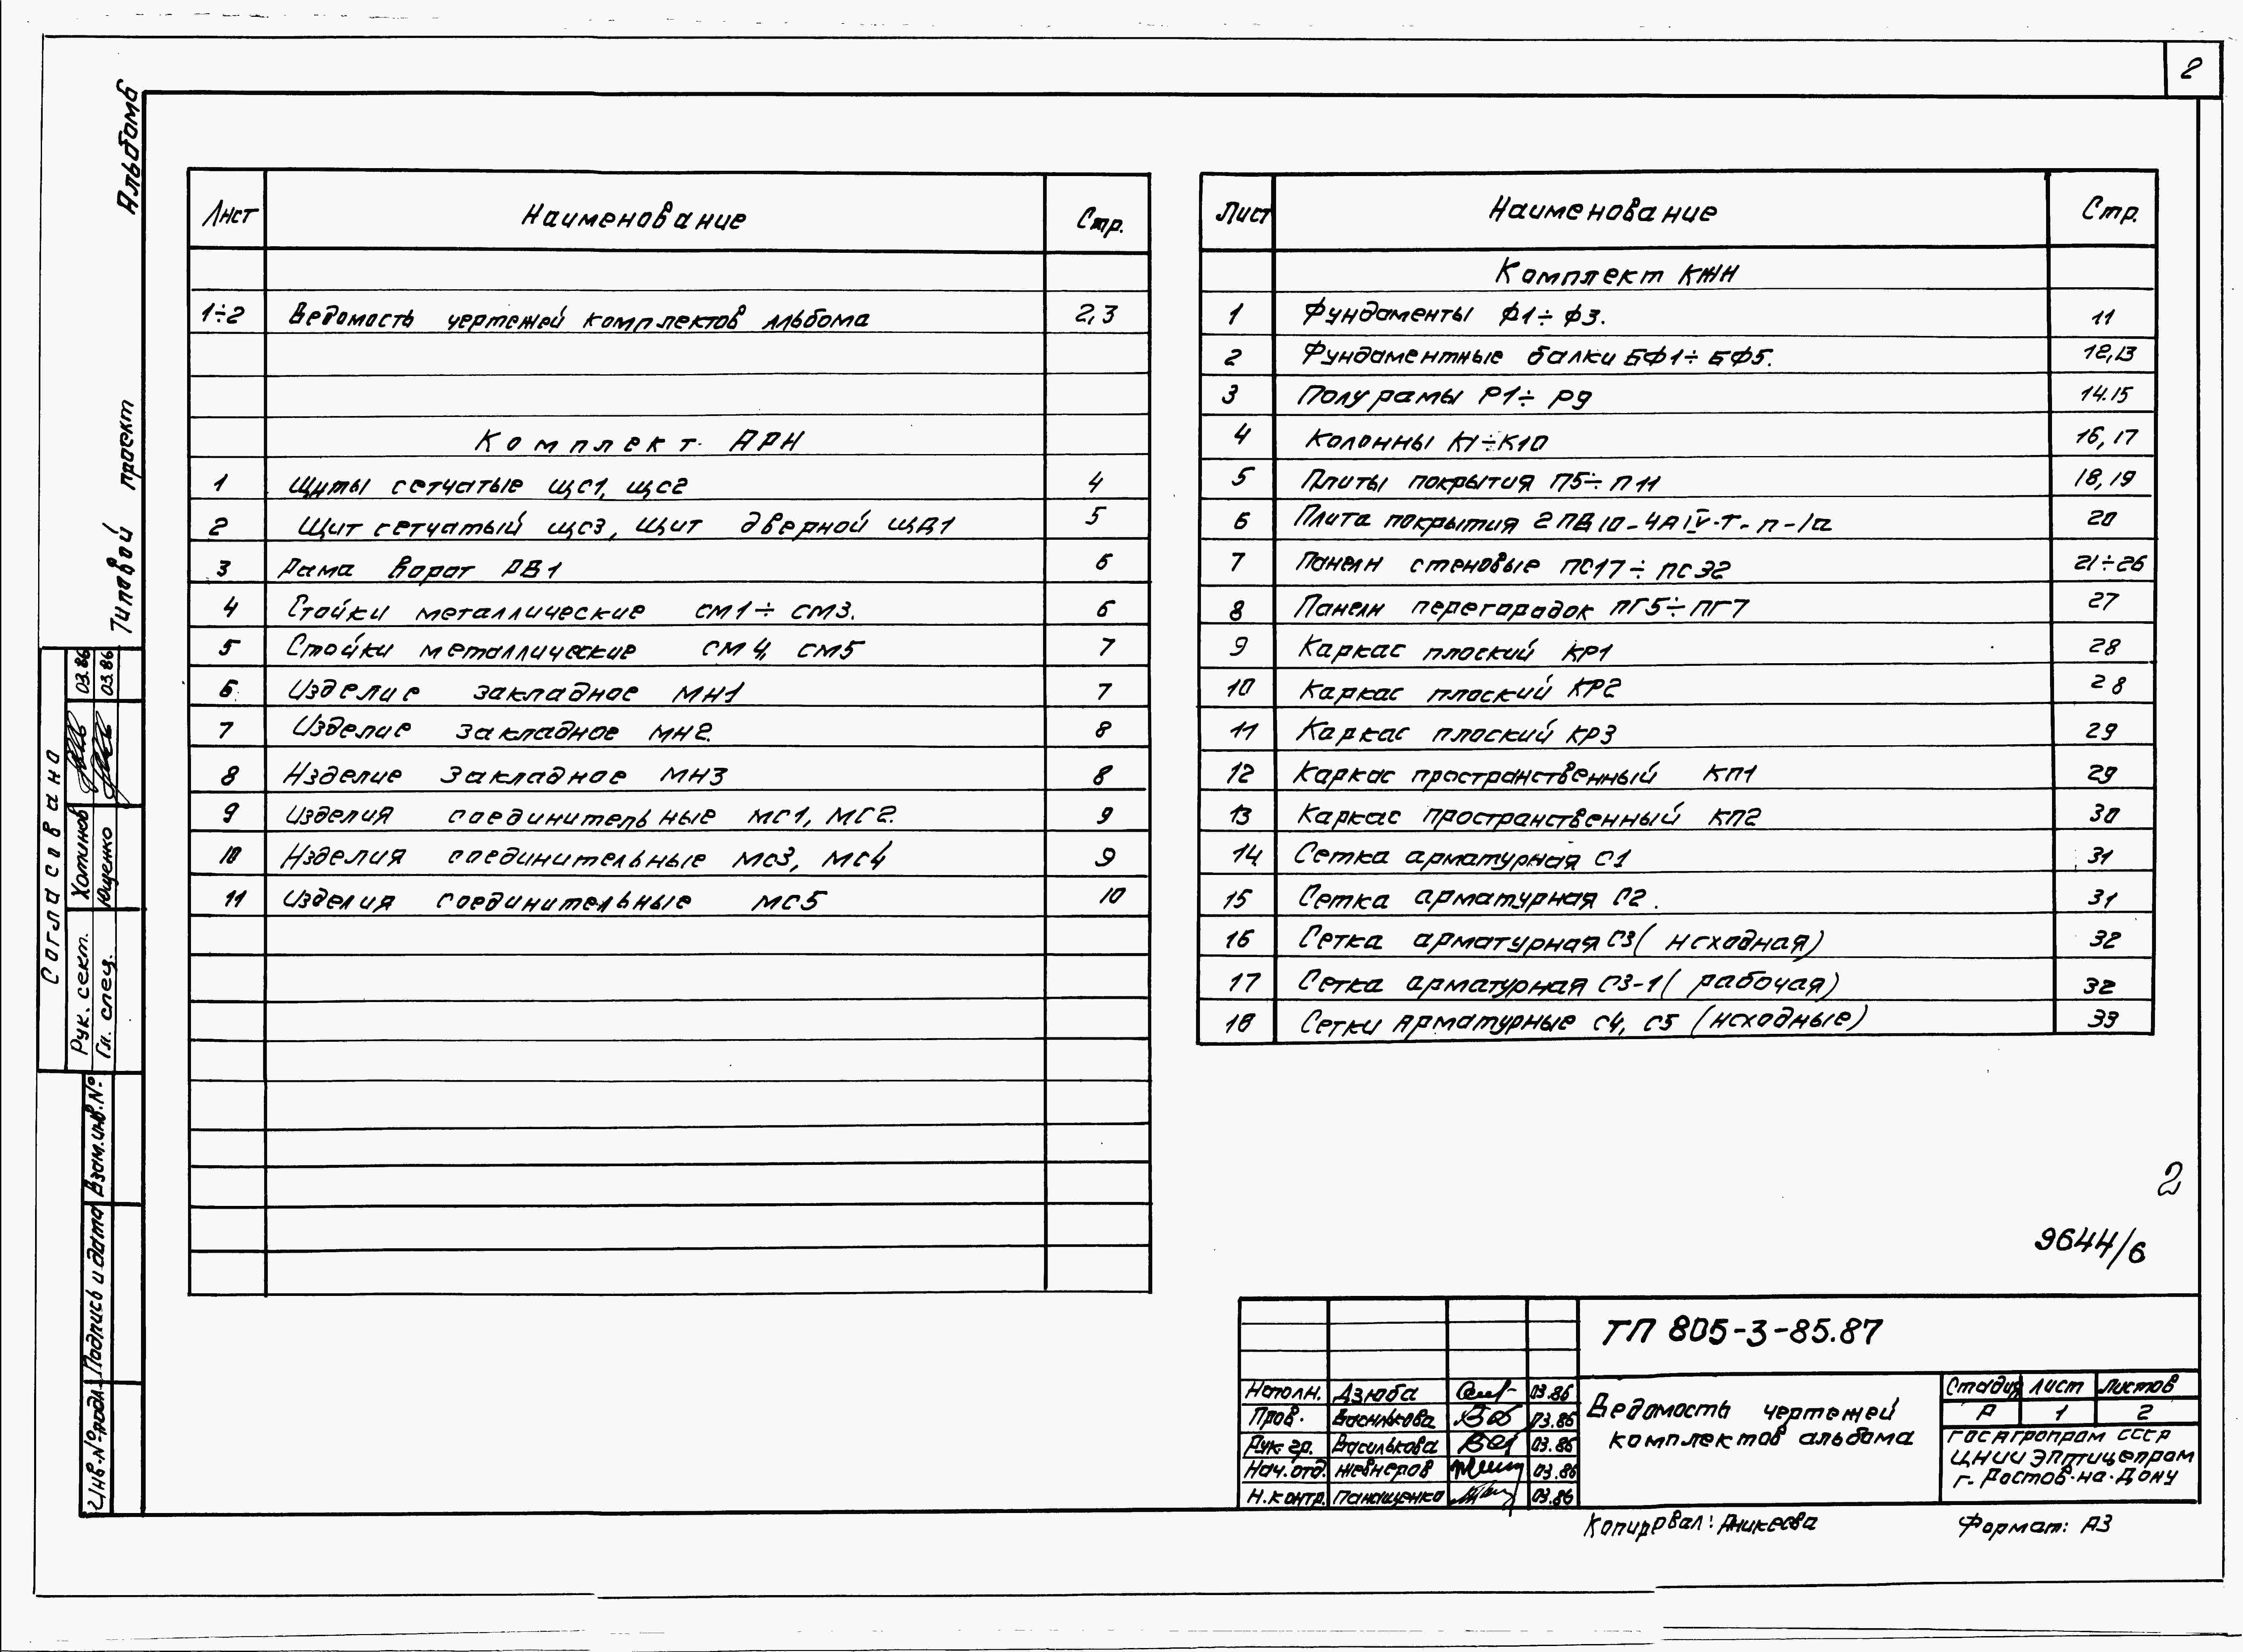 2
Альбом 6
Типовой проект
Лист Наименование Стр.
1÷2 Ведомость чертежей комплектов альбома 2,3
Комплект АРИ
1 Щиты сетчатые ЩС1, ЩС2 4
2 Щит сетчатый ЩС3, Щит дверной ЩД1 5
3 Рама ворот РВ1 6
4 Стойки металлические СМ1÷ СМ3. 6
5 Стойки металлические СМ4, СМ5 7
6 Изделие закладное МН1 7
7 Изделие закладное МН2 8
8 Изделие закладное МН3 8
9 Изделия соединительные МС1, МС2. 9
10 Изделия соединительные МС3, МС4 9
11 Изделия соединительные МС5 10
Лист Наименование Стр.
Комплект КЖИ
1 Фундаменты Ф1÷ Ф3. 11
2 Фундаментные балки БФ1÷ БФ5. 12,13
3 Полурамы Р1÷ Р9 14.15
4 Колонны К1÷К10 16, 17
5 Плиты покрытия П5÷ П11 18, 19
6 Плита покрытия 2ПВ10-4АIV-Т-п-1а 20
7 Панели стеновые ПС17÷ ПС32 21÷26
8 Панели перегородок ПГ5÷ПГ7 27
9 Каркас плоский КР1 28
10 Каркас плоский КР2 28
11 Каркас плоский КР3 29
12 Каркас пространственный КП1 29
13 Каркас пространственный КП2 30
14 Сетка арматурная С1 31
15 Сетка арматурная С2. 31
16 Сетка арматурная С3 (исходная) 32
17 Сетка арматурная С3-1 (рабочая) 32
18 Сетки арматурные С4, С5 (исходные) 33
Согласовано
Рук. сект. Хотинов 03.86
Гл. спец. Ющенко 03.86
Взам.инв.№
Подпись и дата
Инв.№подл.
2
9644/6
ТП 805-3-85.87
Исполн. Дзюба 03.86
Пров. Василькова 03.86
Рук. гр. Василькова 03.86
Нач.отд. Жевнеров 03.86
Н.контр. Панащенко 03.86
Ведомость чертежей
комплектов альбома
Стадия Лист Листов
Р 1 2
Госагропром СССР
ЦНИИЭПптицепром
г. Ростов-на-Дону
Копировал: Аникеева Формат: А3